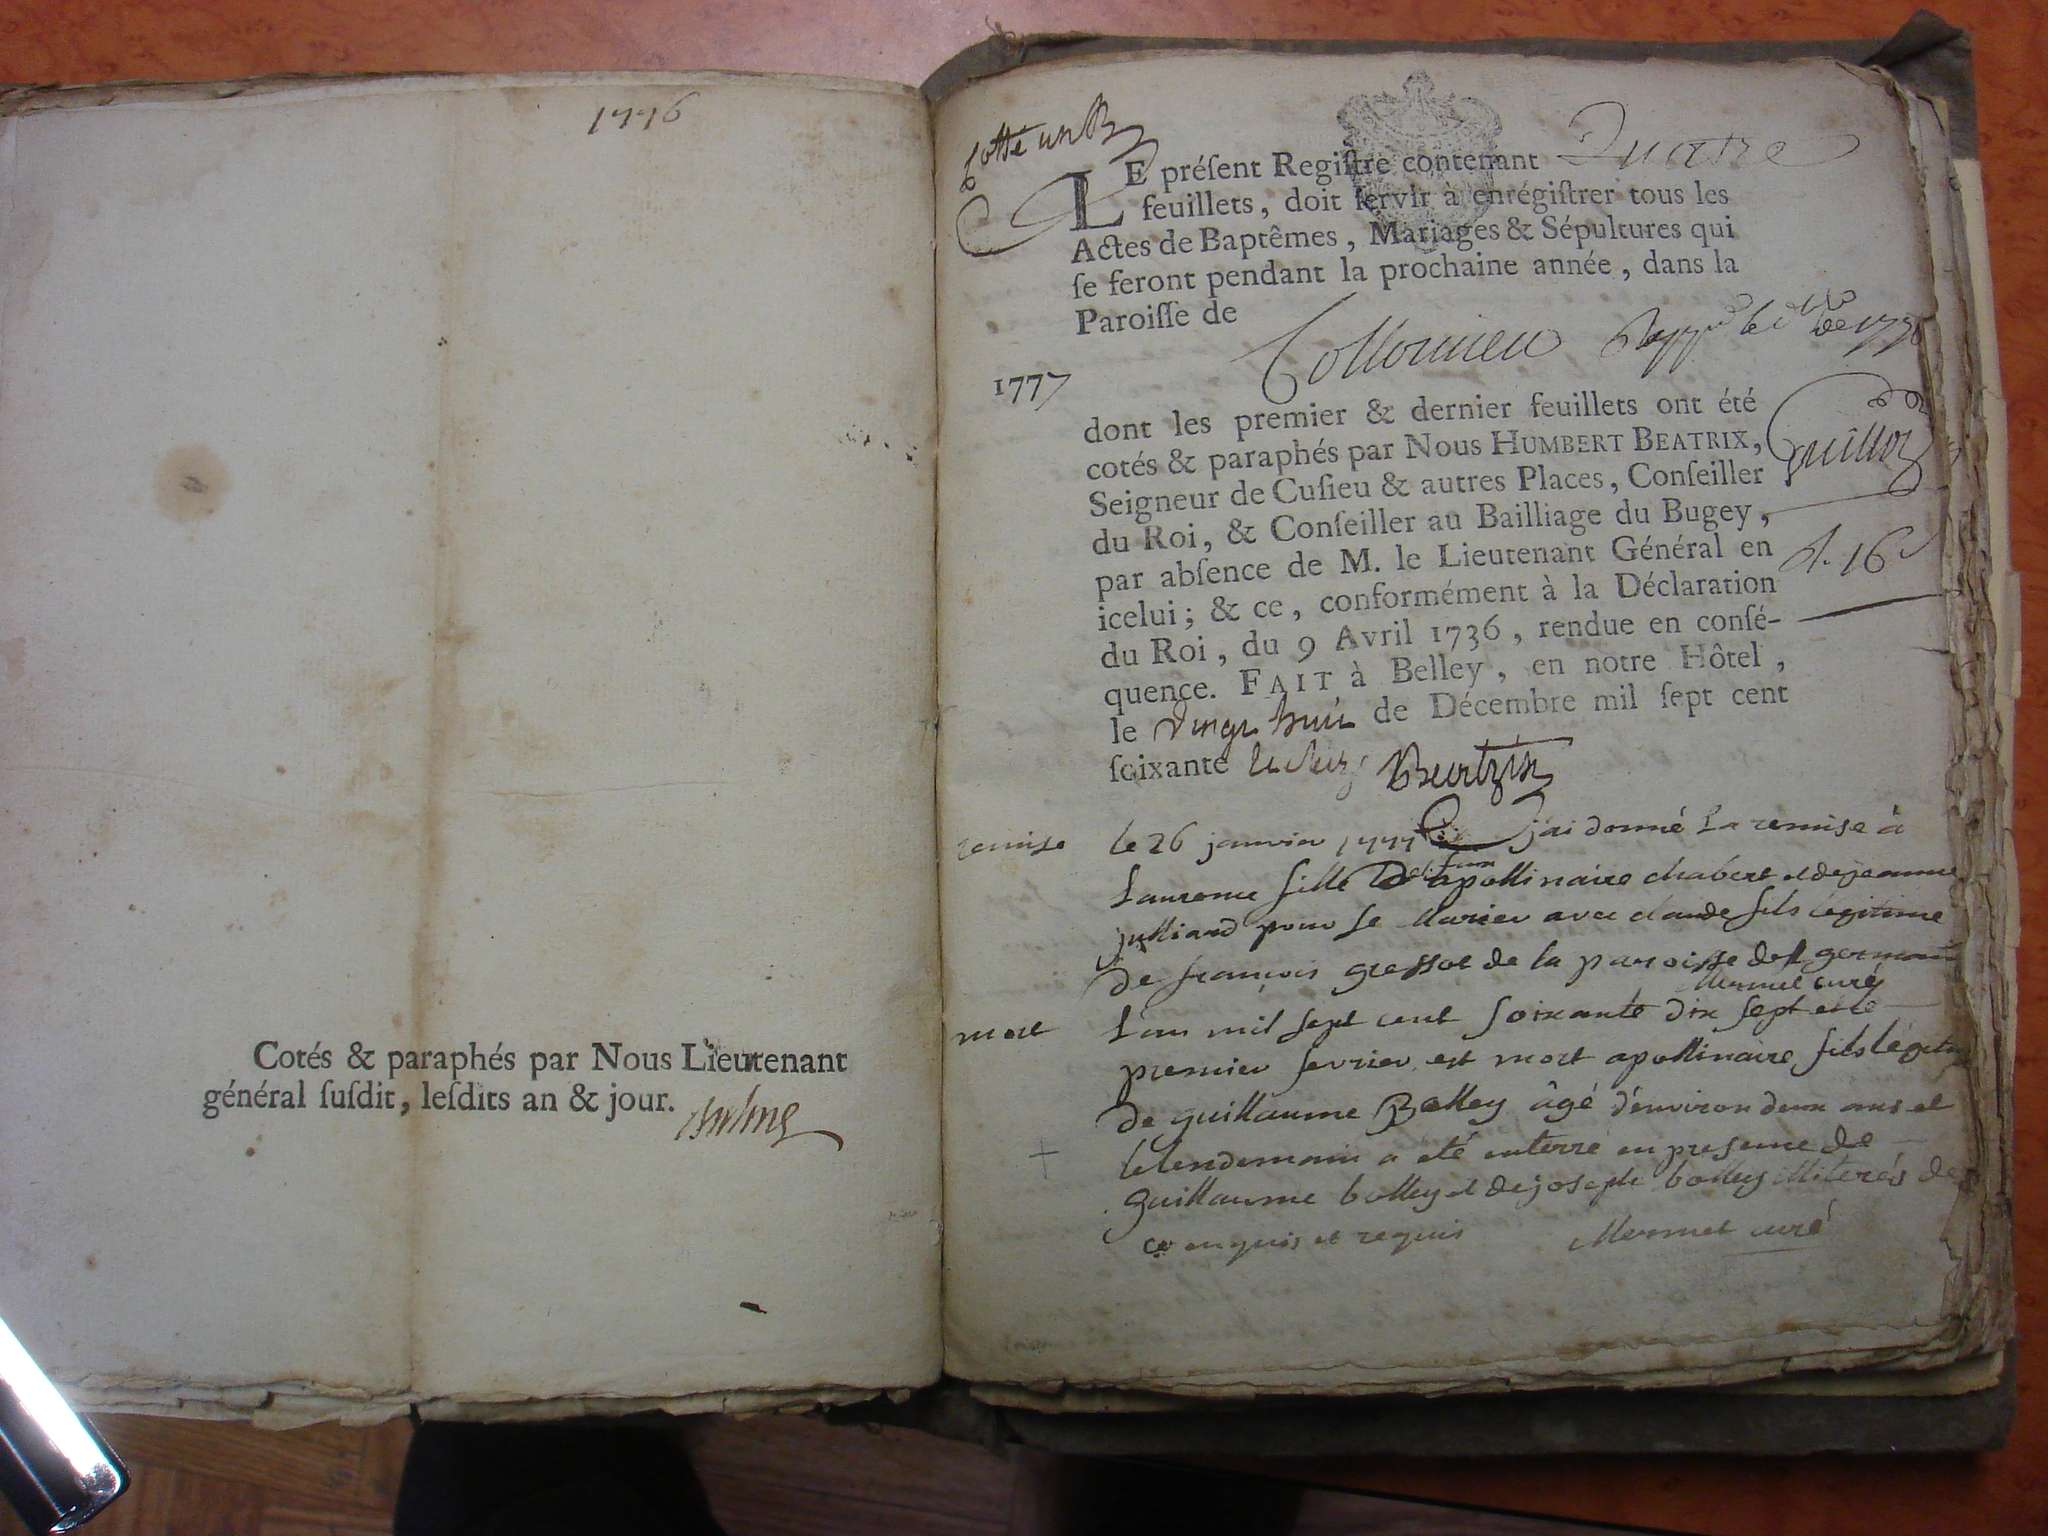 1776
Cotés & paraphés par Nous Lieutenant
général suſdit, leſdits an & jour.
Cotte un
LE préſent Regiſtre contenant Quatre
feuillets, doit ſervir à enrégiſtrer tous les
Actes de Baptêmes, Mariages & Sépultures qui
ſe feront pendant la prochaine année, dans la
Paroiſſe de
Collomieu
1777
dont les premier & dernier feuillets ont été
cotés & paraphés par Nous HUMBERT BEATRIX,
Seigneur de Cuſieu & autres Places, Conſeiller
du Roi, & Conſeiller au Bailliage du Bugey,
par abſence de M. le Lieutenant Général en
icelui; & ce, conformément à la Déclaration
du Roi, du 9 Avril 1736, rendue en conſé-
quence. FAIT à Belley, en notre Hôtel,
le vingt huit de Décembre mil ſept cent
ſoixante Beatrix
Guillot
16
remise le 26 janvier 1777 j'ai donné la remise à
Laurence fille apollinaire chabert et de jeanne
julliard pour se Marier avec claude fils legitime
de françois gressot de la paroisse de st germain
Mermet curé
mort L'an mil sept cent soixante dix sept et le
premier fevrier est mort apollinaire fils légit
de guillaume Bolley âgé d'environ deux ans et
le lendemain a été enterré en presence de
guillaume bolley et de joseph bolley illiterés de
ce enquis et requis Mermet curé